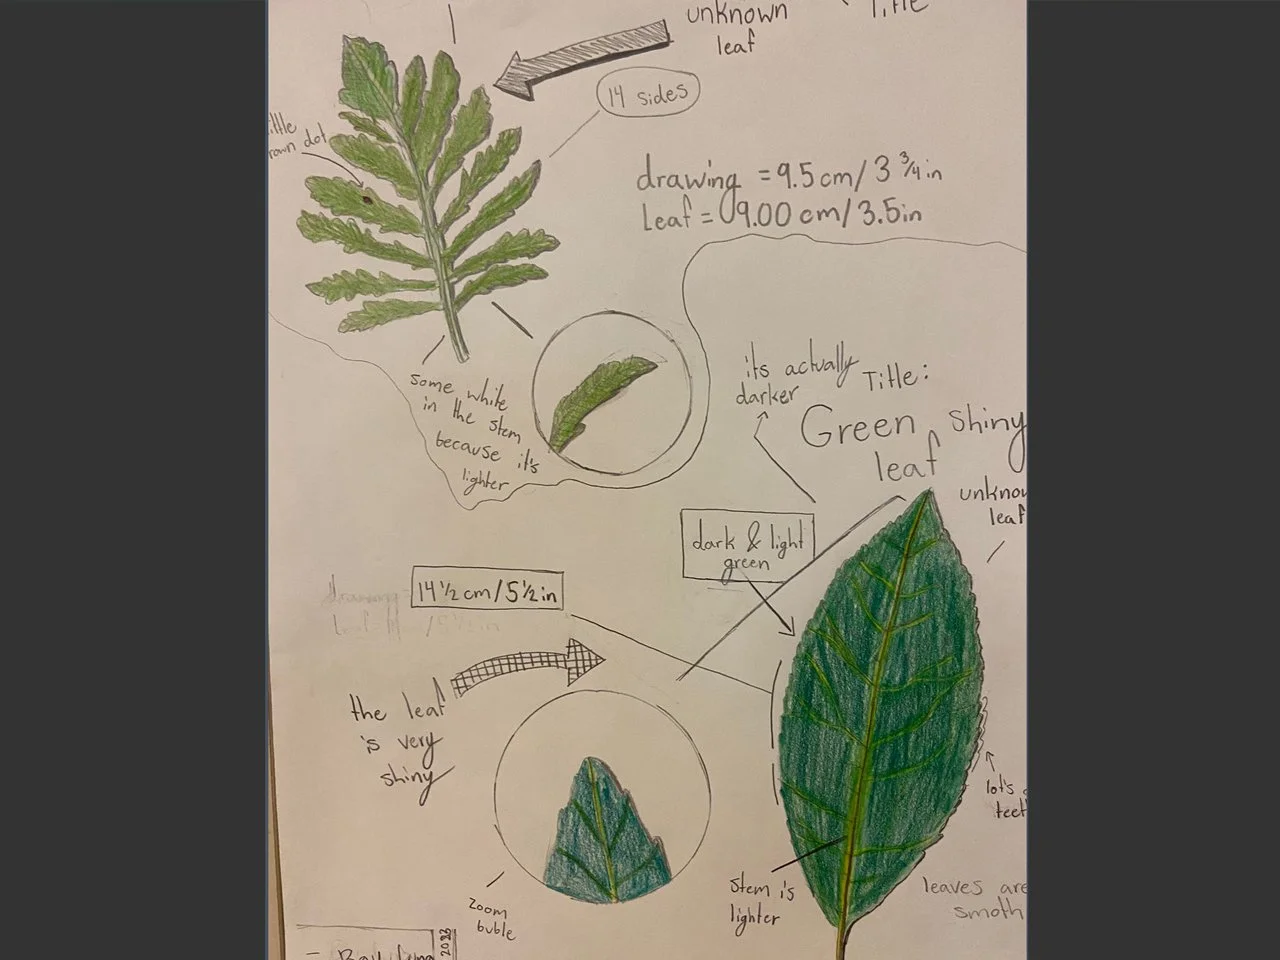 unknown
leaf
Title
14 sides
dot
drawing = 9.5 cm/3 3/4 in
Leaf = 9.00 cm/3.5in
some white
in the stem
because it's
lighter
its actually
darker
Title:
Green shiny
leaf
leaf
dark & light
green
14 1/2 cm/5 1/2 in
drawing
/5 1/2 in
the leaf
is very
shiny
lot's
Zoom
buble
stem is
lighter
leaves are
smoth
2022